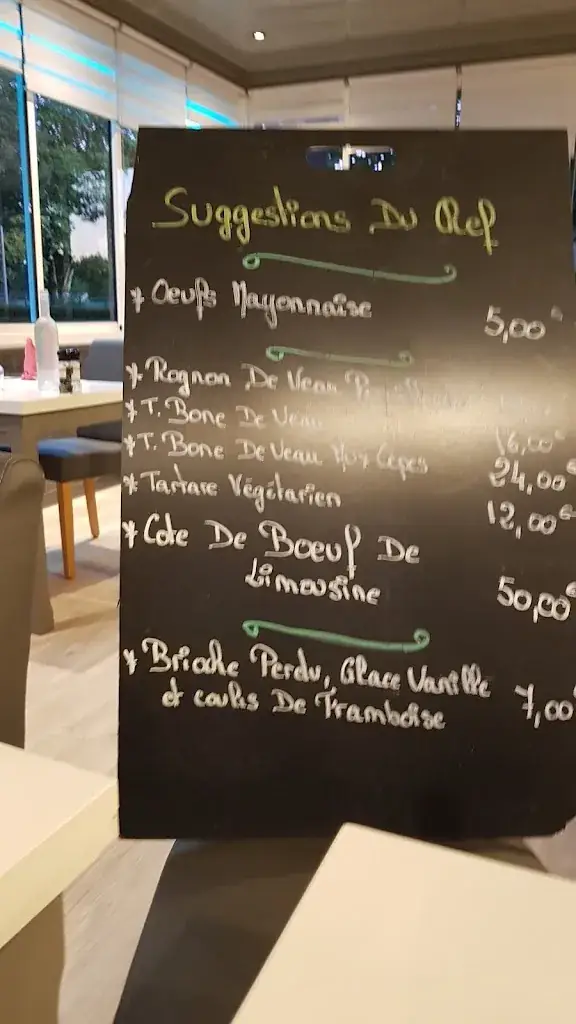 Suggestions Du Ref
* Oeufs Mayonnaise 5,00€
* Rognon De Veau
* T. Bone De Veau 16,00€
* T. Bone De Veau Aux Cèpes 24,00€
* Tartare Végétarien 12,00€
* Cote De Boeuf De
Limousine 50,00€
* Brioche Perdu, Glace Vanille
et coulis De Framboise 7,00